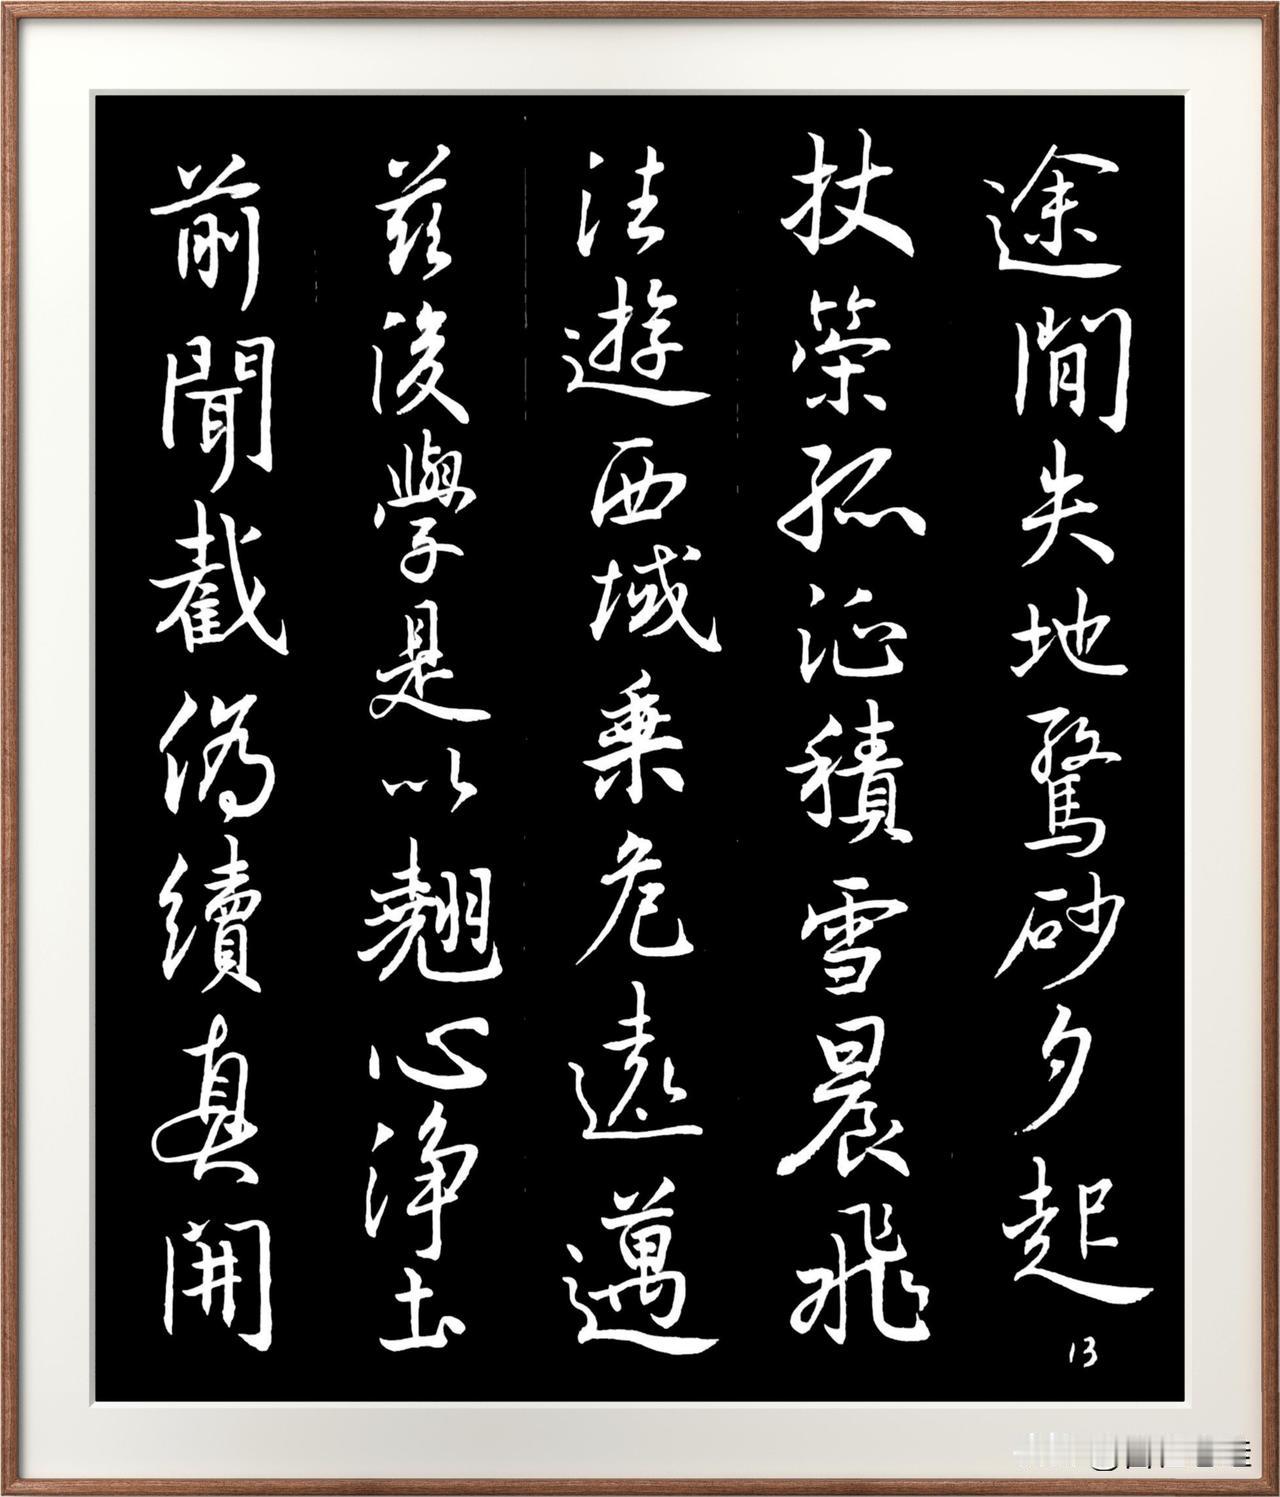 途閒失地驚砂夕起
13
杖策孤征積雪晨飛
法遊西域乘危遠邁
茲後學是以翹心淨土
前聞截偽續真開